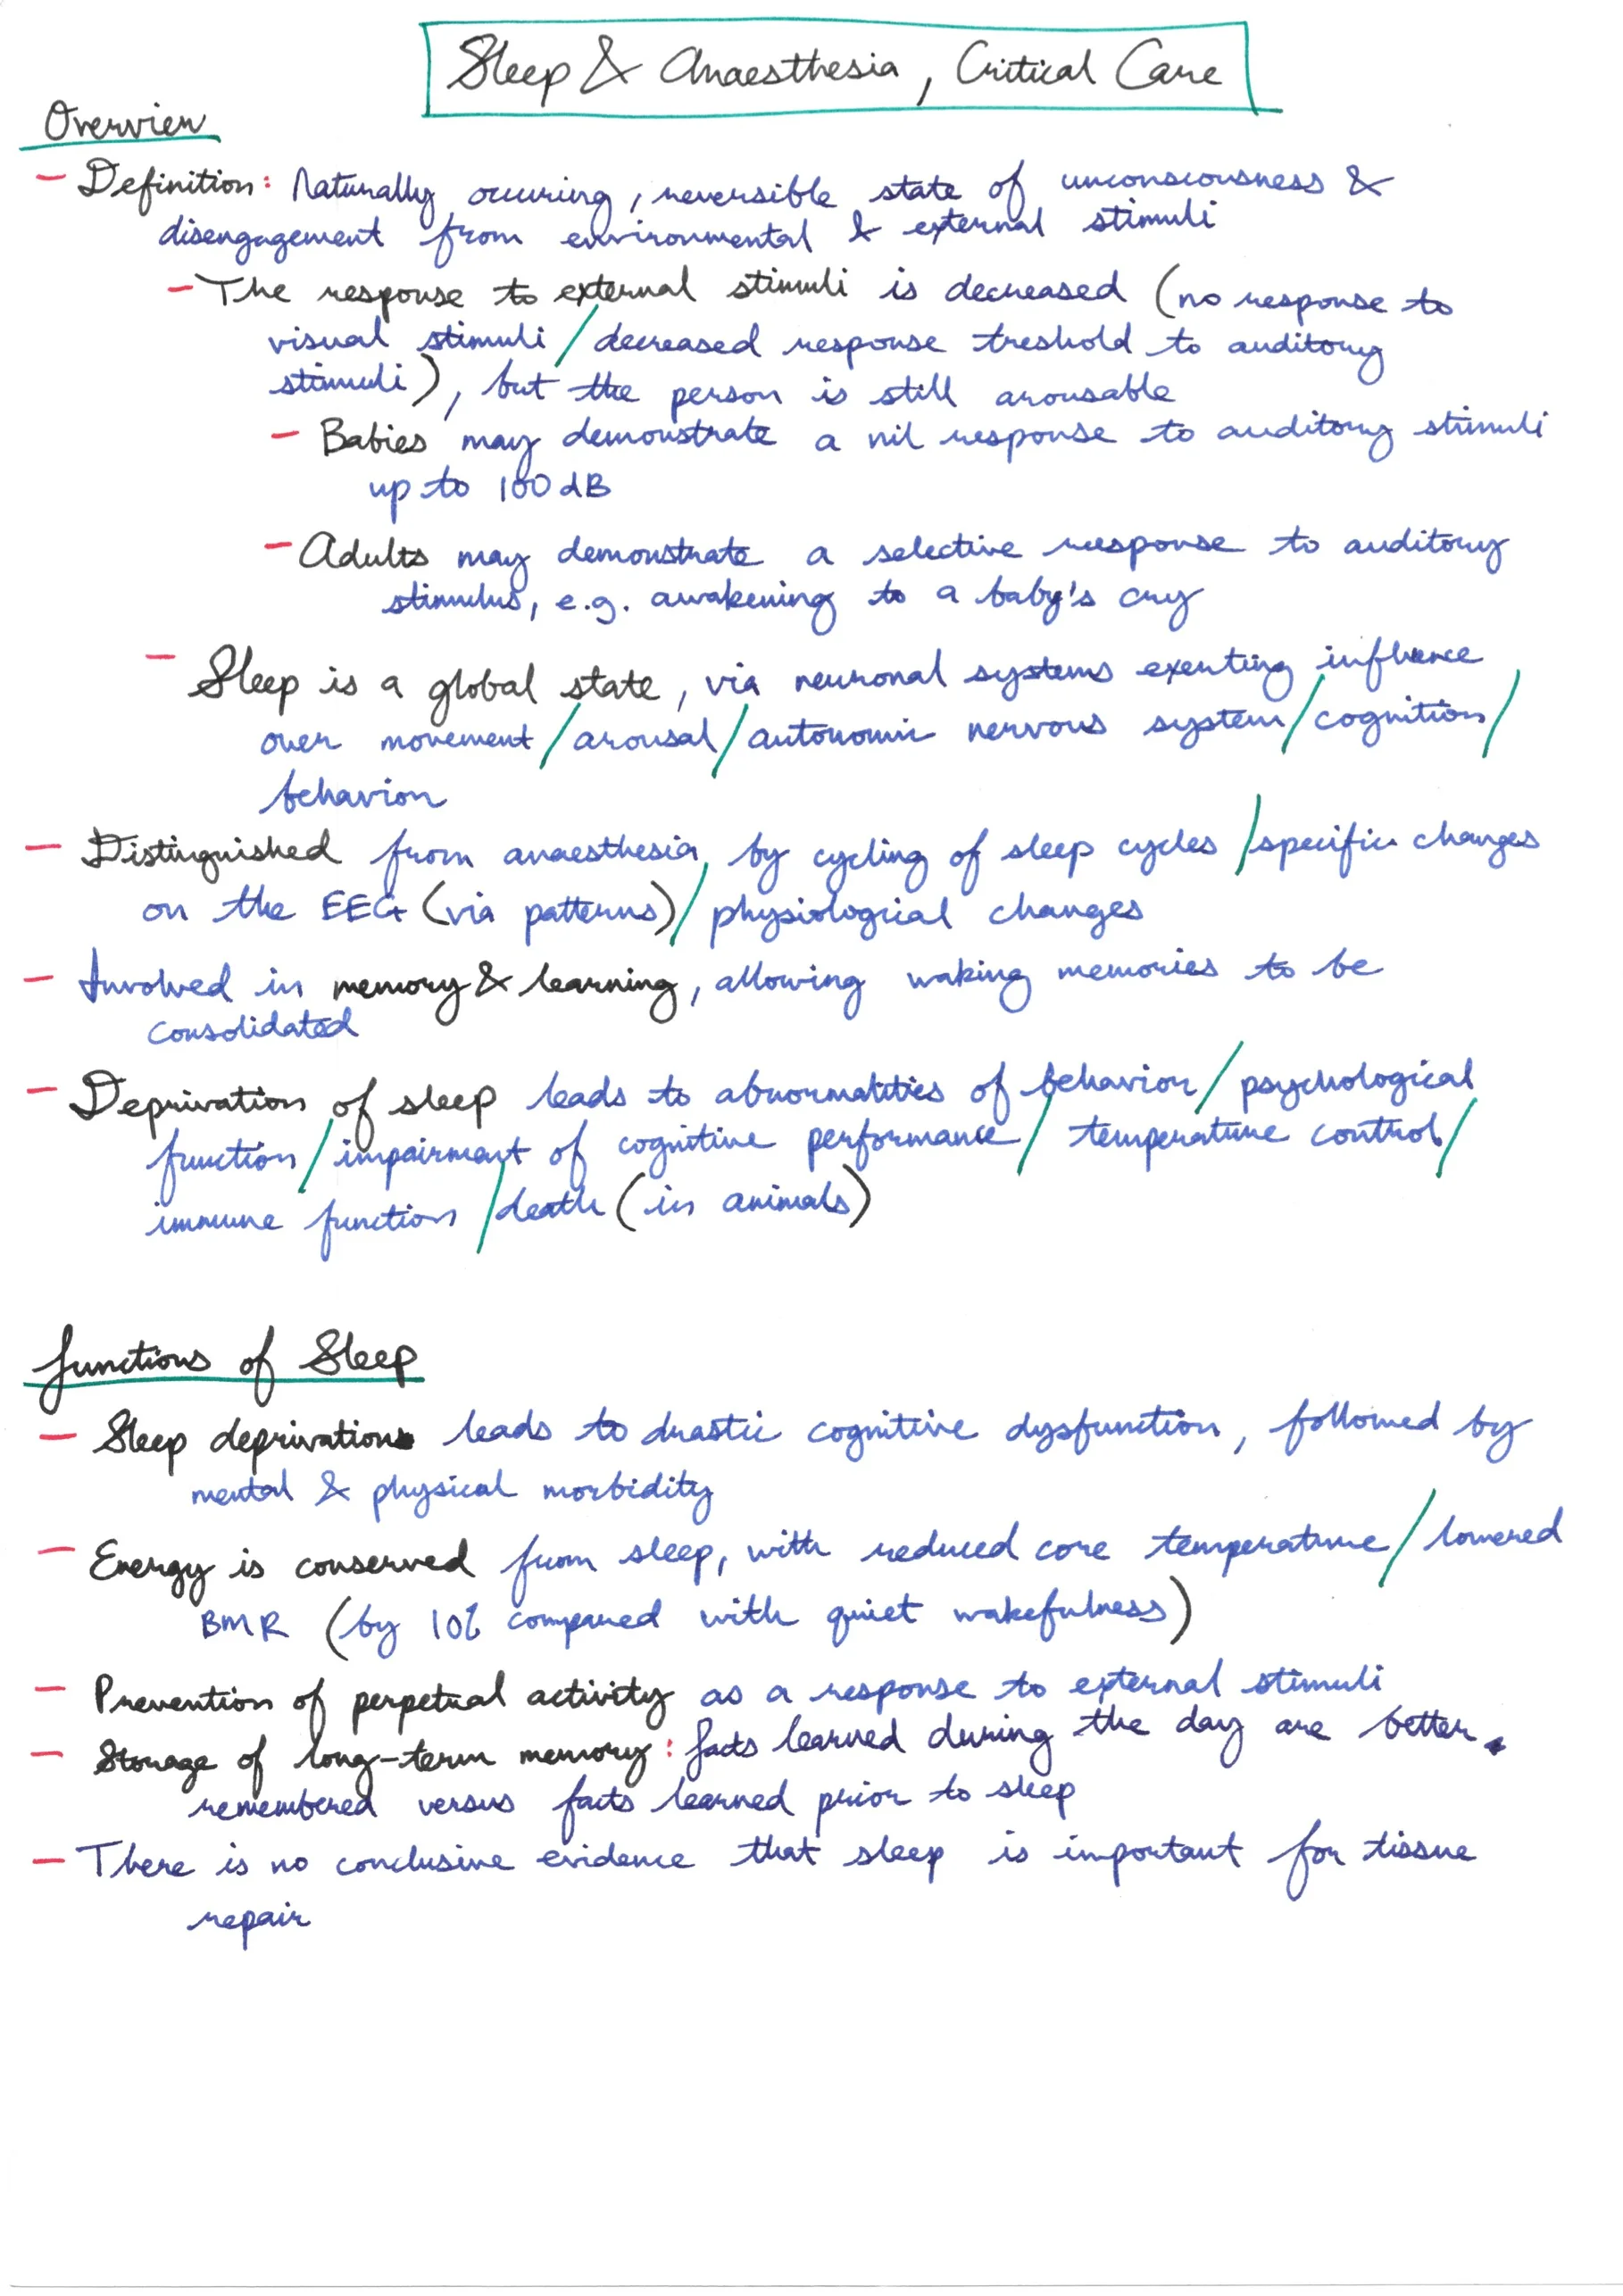 Sleep & Anaesthesia, Critical Care
Overview
- Definition: Naturally occuring, reversible state of unconsciousness &
disengagement from environmental & external stimuli
- The response to external stimuli is decreased (no response to
visual stimuli / decreased response treshold to auditory
stimuli), but the person is still arousable
- Babies may demonstrate a nil response to auditory stimuli
up to 100 dB
- Adults may demonstrate a selective response to auditory
stimulus, e.g. awakening to a baby's cry
- Sleep is a global state, via neuronal systems exerting influence
over movement / arousal / autonomic nervous system / cognition /
behavior
- Distinguished from anaesthesia, by cycling of sleep cycles / specific changes
on the EEG (via patterns) / physiological changes
- Involved in memory & learning, allowing waking memories to be
consolidated
- Deprivation of sleep leads to abnormalities of behavior / psychological
function / impairment of cognitive performance / temperature control /
immune function / death (in animals)
Functions of Sleep
- Sleep deprivation leads to drastic cognitive dysfunction, followed by
mental & physical morbidity
- Energy is conserved from sleep, with reduced core temperature / lowered
BMR (by 10% compared with quiet wakefulness)
- Prevention of perpetual activity as a response to external stimuli
- Storage of long-term memory: facts learned during the day are better
remembered versus facts learned prior to sleep
- There is no conclusive evidence that sleep is important for tissue
repair